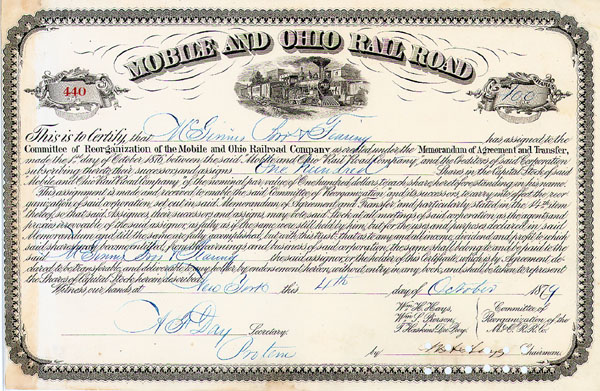 MOBILE AND OHIO RAIL ROAD
440
100
This is to Certify, that McGinnis Bros & Fearing has assigned to the
Committee of Reorganization of the Mobile and Ohio Railroad Company as created under the Memorandum of Agreement and Transfer,
made the 1st day of October 1876, between the said Mobile and Ohio Rail Road Company, and the Creditors of said Corporation
subscribing thereto, their successors and assigns One Hundred Shares in the Capital Stock of said
Mobile and Ohio Rail Road Company of the nominal par value of One hundred dollars to each share, heretofore standing in his name
This assignment is made and received to vest in said Committee of Reorganization, and its successors, necessary to effect the reor-
ganization of said corporation set out in said Memorandum of Agreement and Transfer and particularly stated in the
thereof, so that said Assignees, their successors, and assigns, may vote said Stock at all meetings of said corporation, as the agents and
of the said assignor, as fully as if the same were still held by him, and for the uses and purposes declared in said
Memorandum
said shares
said McGinnis Bros & Fearing the said assignor or the holder of this Certificate, which is by Agreement de-
clared to be transferable, and deliverable to any holder by endorsement hereon, without entry in any book, and shall be taken to represent
the Shares of Capital Stock herein described
Witness our hands at New York this 4th day of October 1879
A F Day Secretary.
Protem
Wm H. Hays,
Wm S. Pierson,
Committee of
Reorganization of the
M. & O. R. R. Co.
by Chairman.